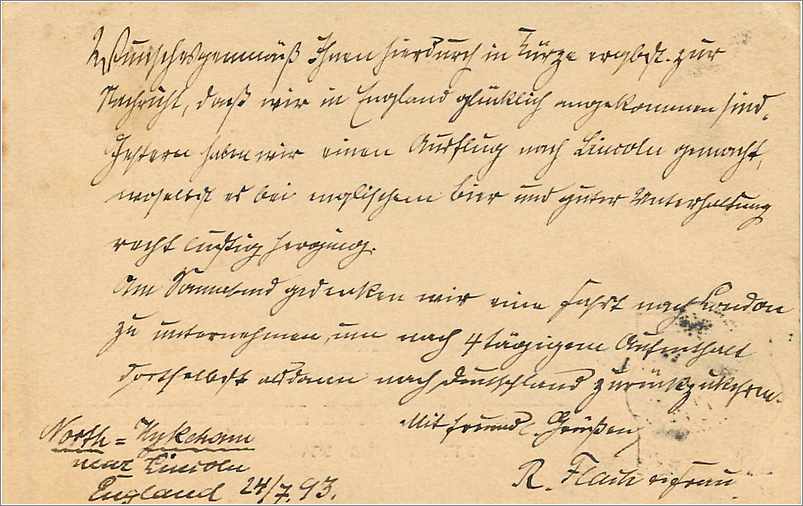 Wunschesgemäß Ihnen hierdurch in Kürze ergbst. zur
Nachricht, daß wir in England glücklich angekommen sind.
Gestern haben wir einen Ausflug nach Lincoln gemacht,
woselbst es bei englischem Bier und guter Unterhaltung
recht lustig herging.
Am Sonnabend gedenken wir eine Fahrt nach London
zu unternehmen, um nach 4 tägigem Aufenthalt
dortselbst alsdann nach Deutschland zurückzukehren.
Mit freundl. Grüßen
R. u Frau
North=Hykeham
near Lincoln
England 24/7.93.